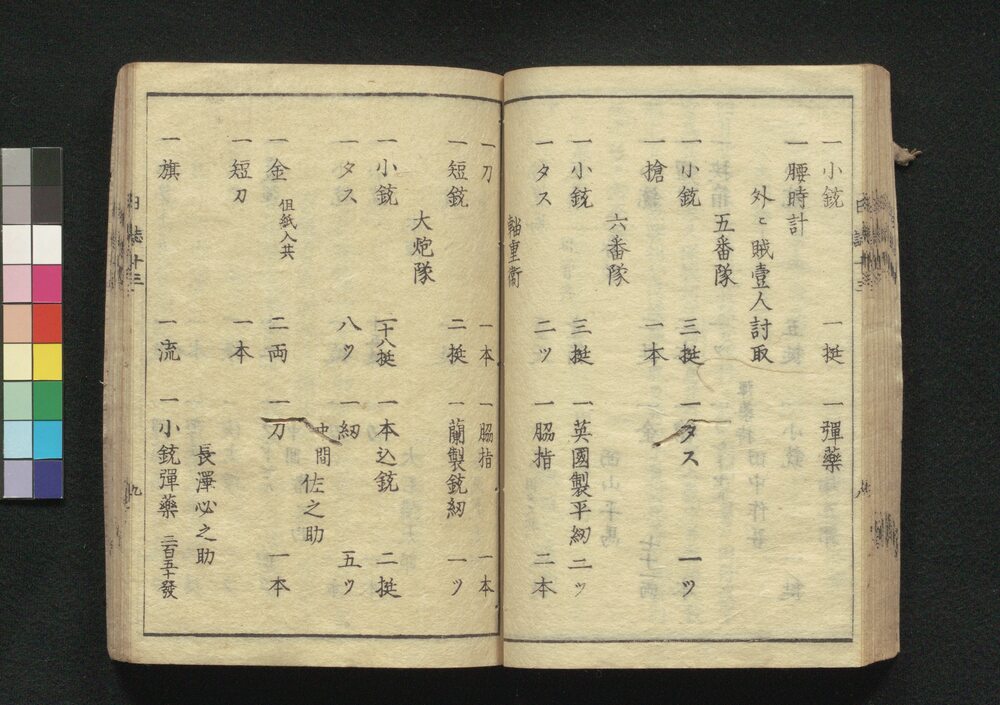 一小銃 一挺 一彈藥
一腰時計
外ニ賊壹人討取
五番隊
一小銃 三挺 一タス 一ッ
一槍 一本
六番隊
一小銃 三挺 一英國製平籾 二ッ
一タス 二ッ 一脇指 二本
輜重衛
一刀 一本 一脇指 一本
一短銃 二挺 一蘭製銃籾 一ッ
大炮隊
一小銃 十八挺 一本込銃 二挺
一タス 八ッ 一籾 五ッ
中間 佐之助
一金 但紙入共 二両 一刀 一本
一短刀 一本
長澤必之助
一旗 一流 一小銃彈藥 二百五十發
日誌十三 九